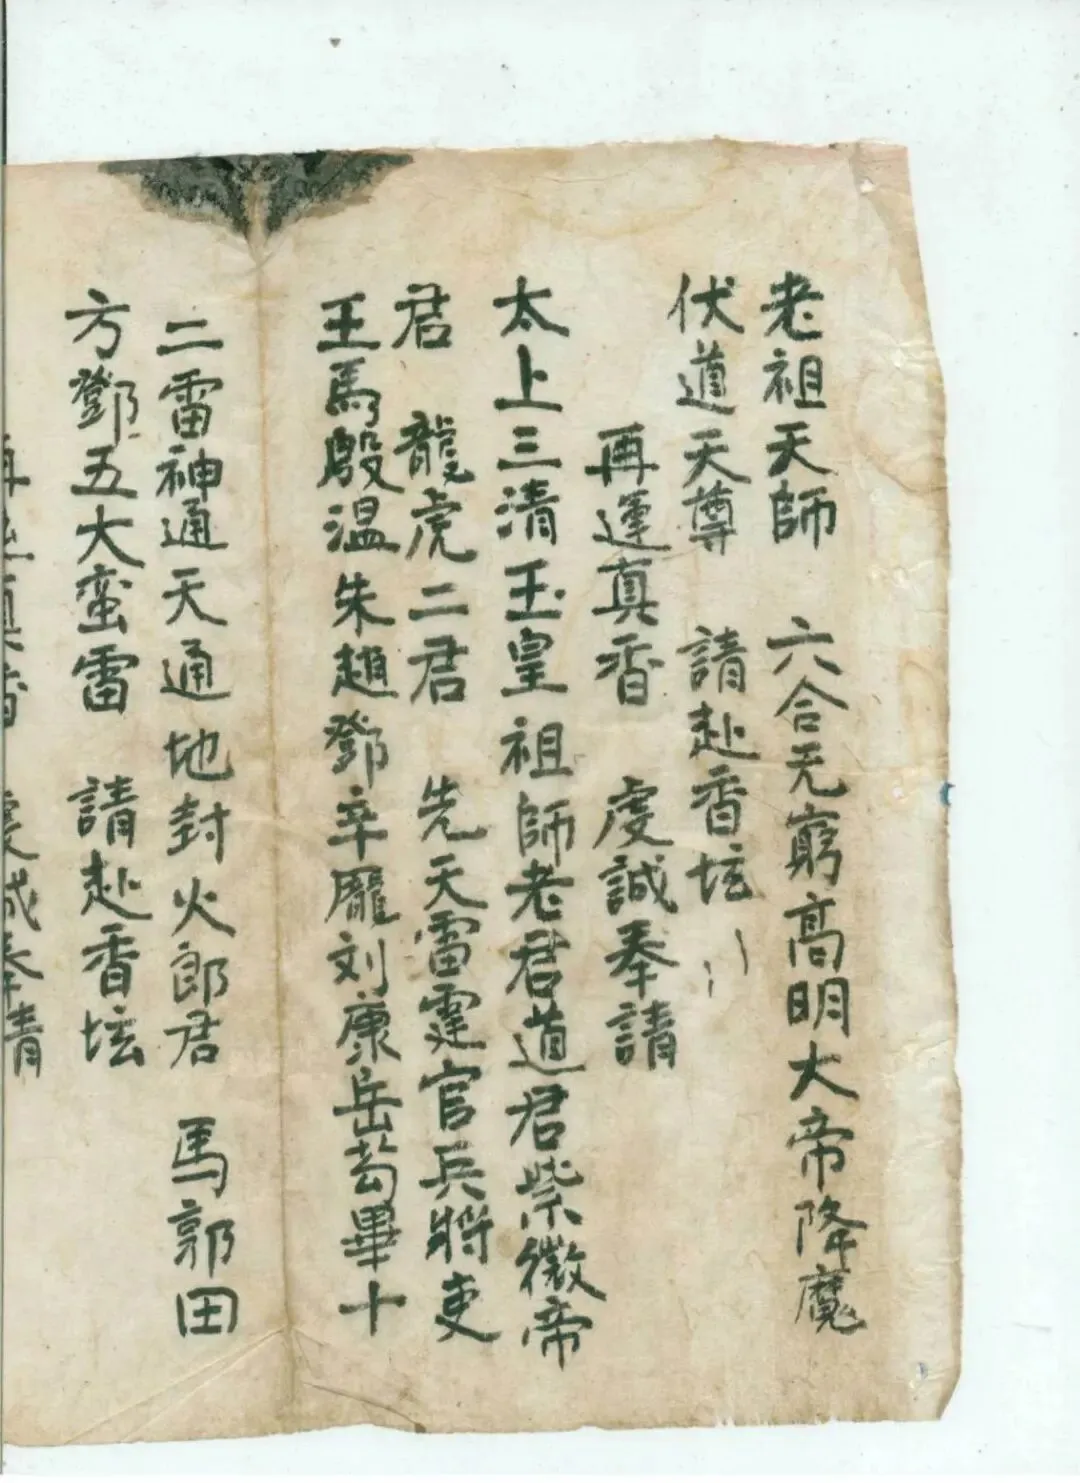 老祖天師　六合无窮高明大帝降魔
伏道天尊　請赴香坛
再運真香　虔誠奉請
太上三清玉皇祖師老君道君紫微帝
君　龍虎二君　先天雷霆官兵將吏
王馬殷温朱趙鄧辛龐刘康岳苟畢十
二雷神通天通地封火郎君　馬郭田
方鄧五大蛮雷　請赴香坛
再運真香　虔誠奉請